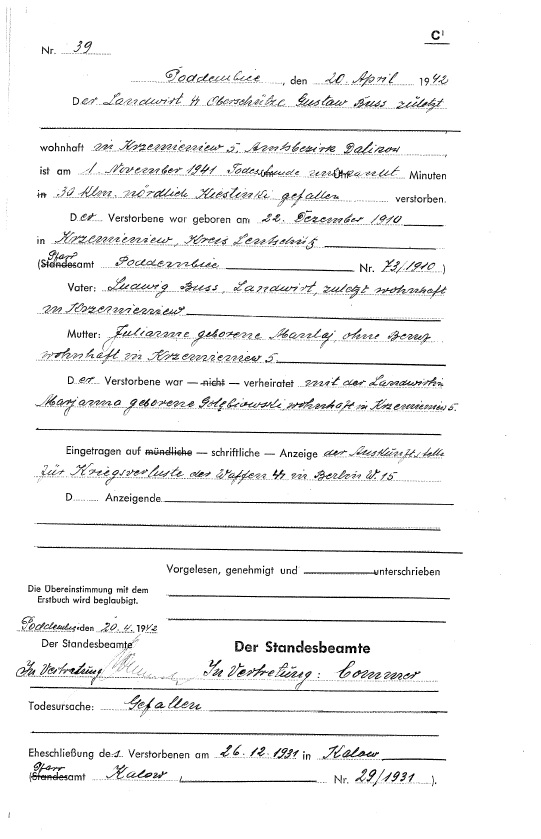 C¹
Nr. 39
Poddembice, den 20. April 1942
Der Landwirt ᛋᛋ Oberschütze Gustaw Buss zuletzt
wohnhaft in Krzemieniew 5, Amtsbezirk Dalikow
ist am 1. November 1941 Todesstunde unbekannt Minuten
in 30 klm. nördlich Kiestinki gefallen verstorben.
Der Verstorbene war geboren am 22. Dezember 1910
in Krzemieniew, Kreis Lentschütz
Pfarr
(Standesamt Poddembice Nr. 73/1910)
Vater: Ludwig Buss, Landwirt, zuletzt wohnhaft
in Krzemieniew
Mutter: Julianne geborene Mantaj, ohne Beruf
wohnhaft in Krzemieniew 5.
Der Verstorbene war — nicht — verheiratet mit der Landwirtin
Marjanna geborene Gołębiowski, wohnhaft in Krzemieniew 5.
Eingetragen auf mündliche — schriftliche — Anzeige der Auskunftstelle
für Kriegsverluste der Waffen ᛋᛋ in Berlin W. 15
D Anzeigende
Vorgelesen, genehmigt und unterschrieben
Die Übereinstimmung mit dem
Erstbuch wird beglaubigt.
Poddembice, den 20. 4. 1942
Der Standesbeamte
In Vertretung
Der Standesbeamte
In Vertretung: Commer
Todesursache: Gefallen
Eheschließung des Verstorbenen am 26.12.1931 in Kalow
Pfarr
(Standesamt Kalow, Nr. 29/1931).